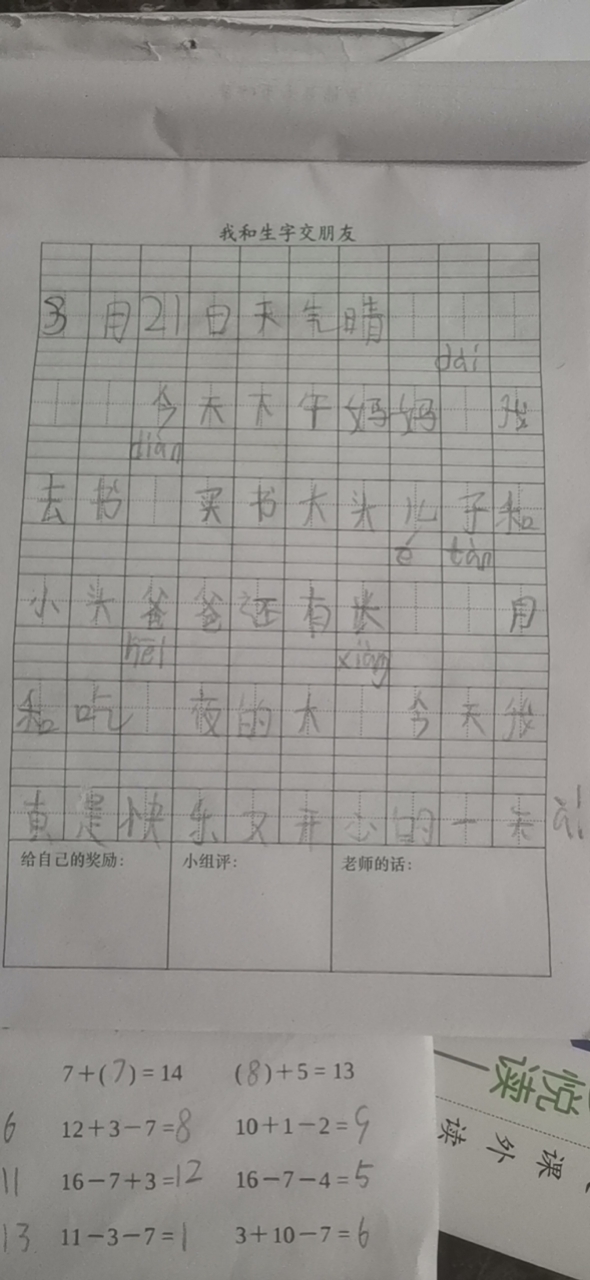 我和生字交朋友
3月21日天气晴
dài
今天下午妈妈 我
diàn
去书 买书大头儿子和
é tàn
小头爸爸还有米 用
hēi xiàng
和吃 夜的大 今天我
真是快乐又开心的一天
给自己的奖励: 小组评: 老师的话:
7+(7)=14 (8)+5=13
6 12+3-7=8 10+1-2=9
11 16-7+3=12 16-7-4=5
13 11-3-7=1 3+10-7=6
悦读
课外读